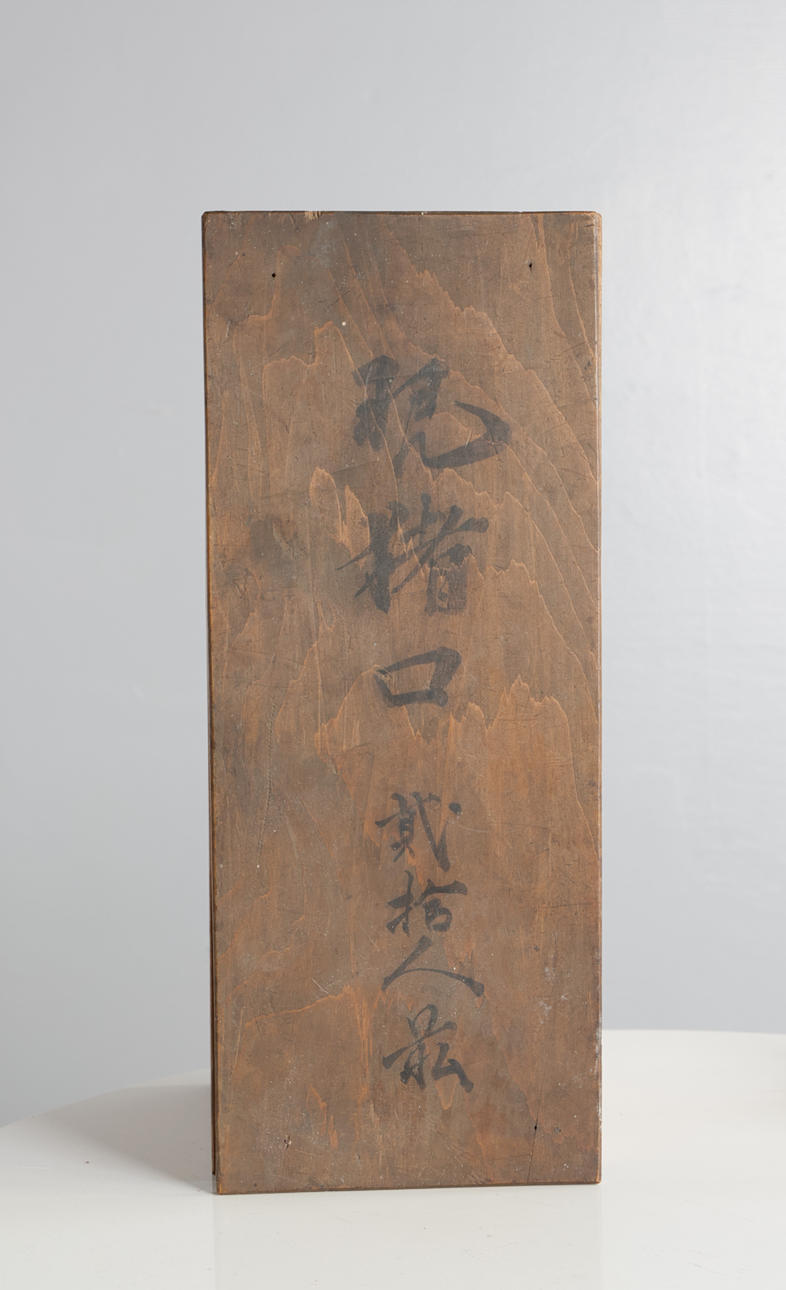 猪口 貳拾人前